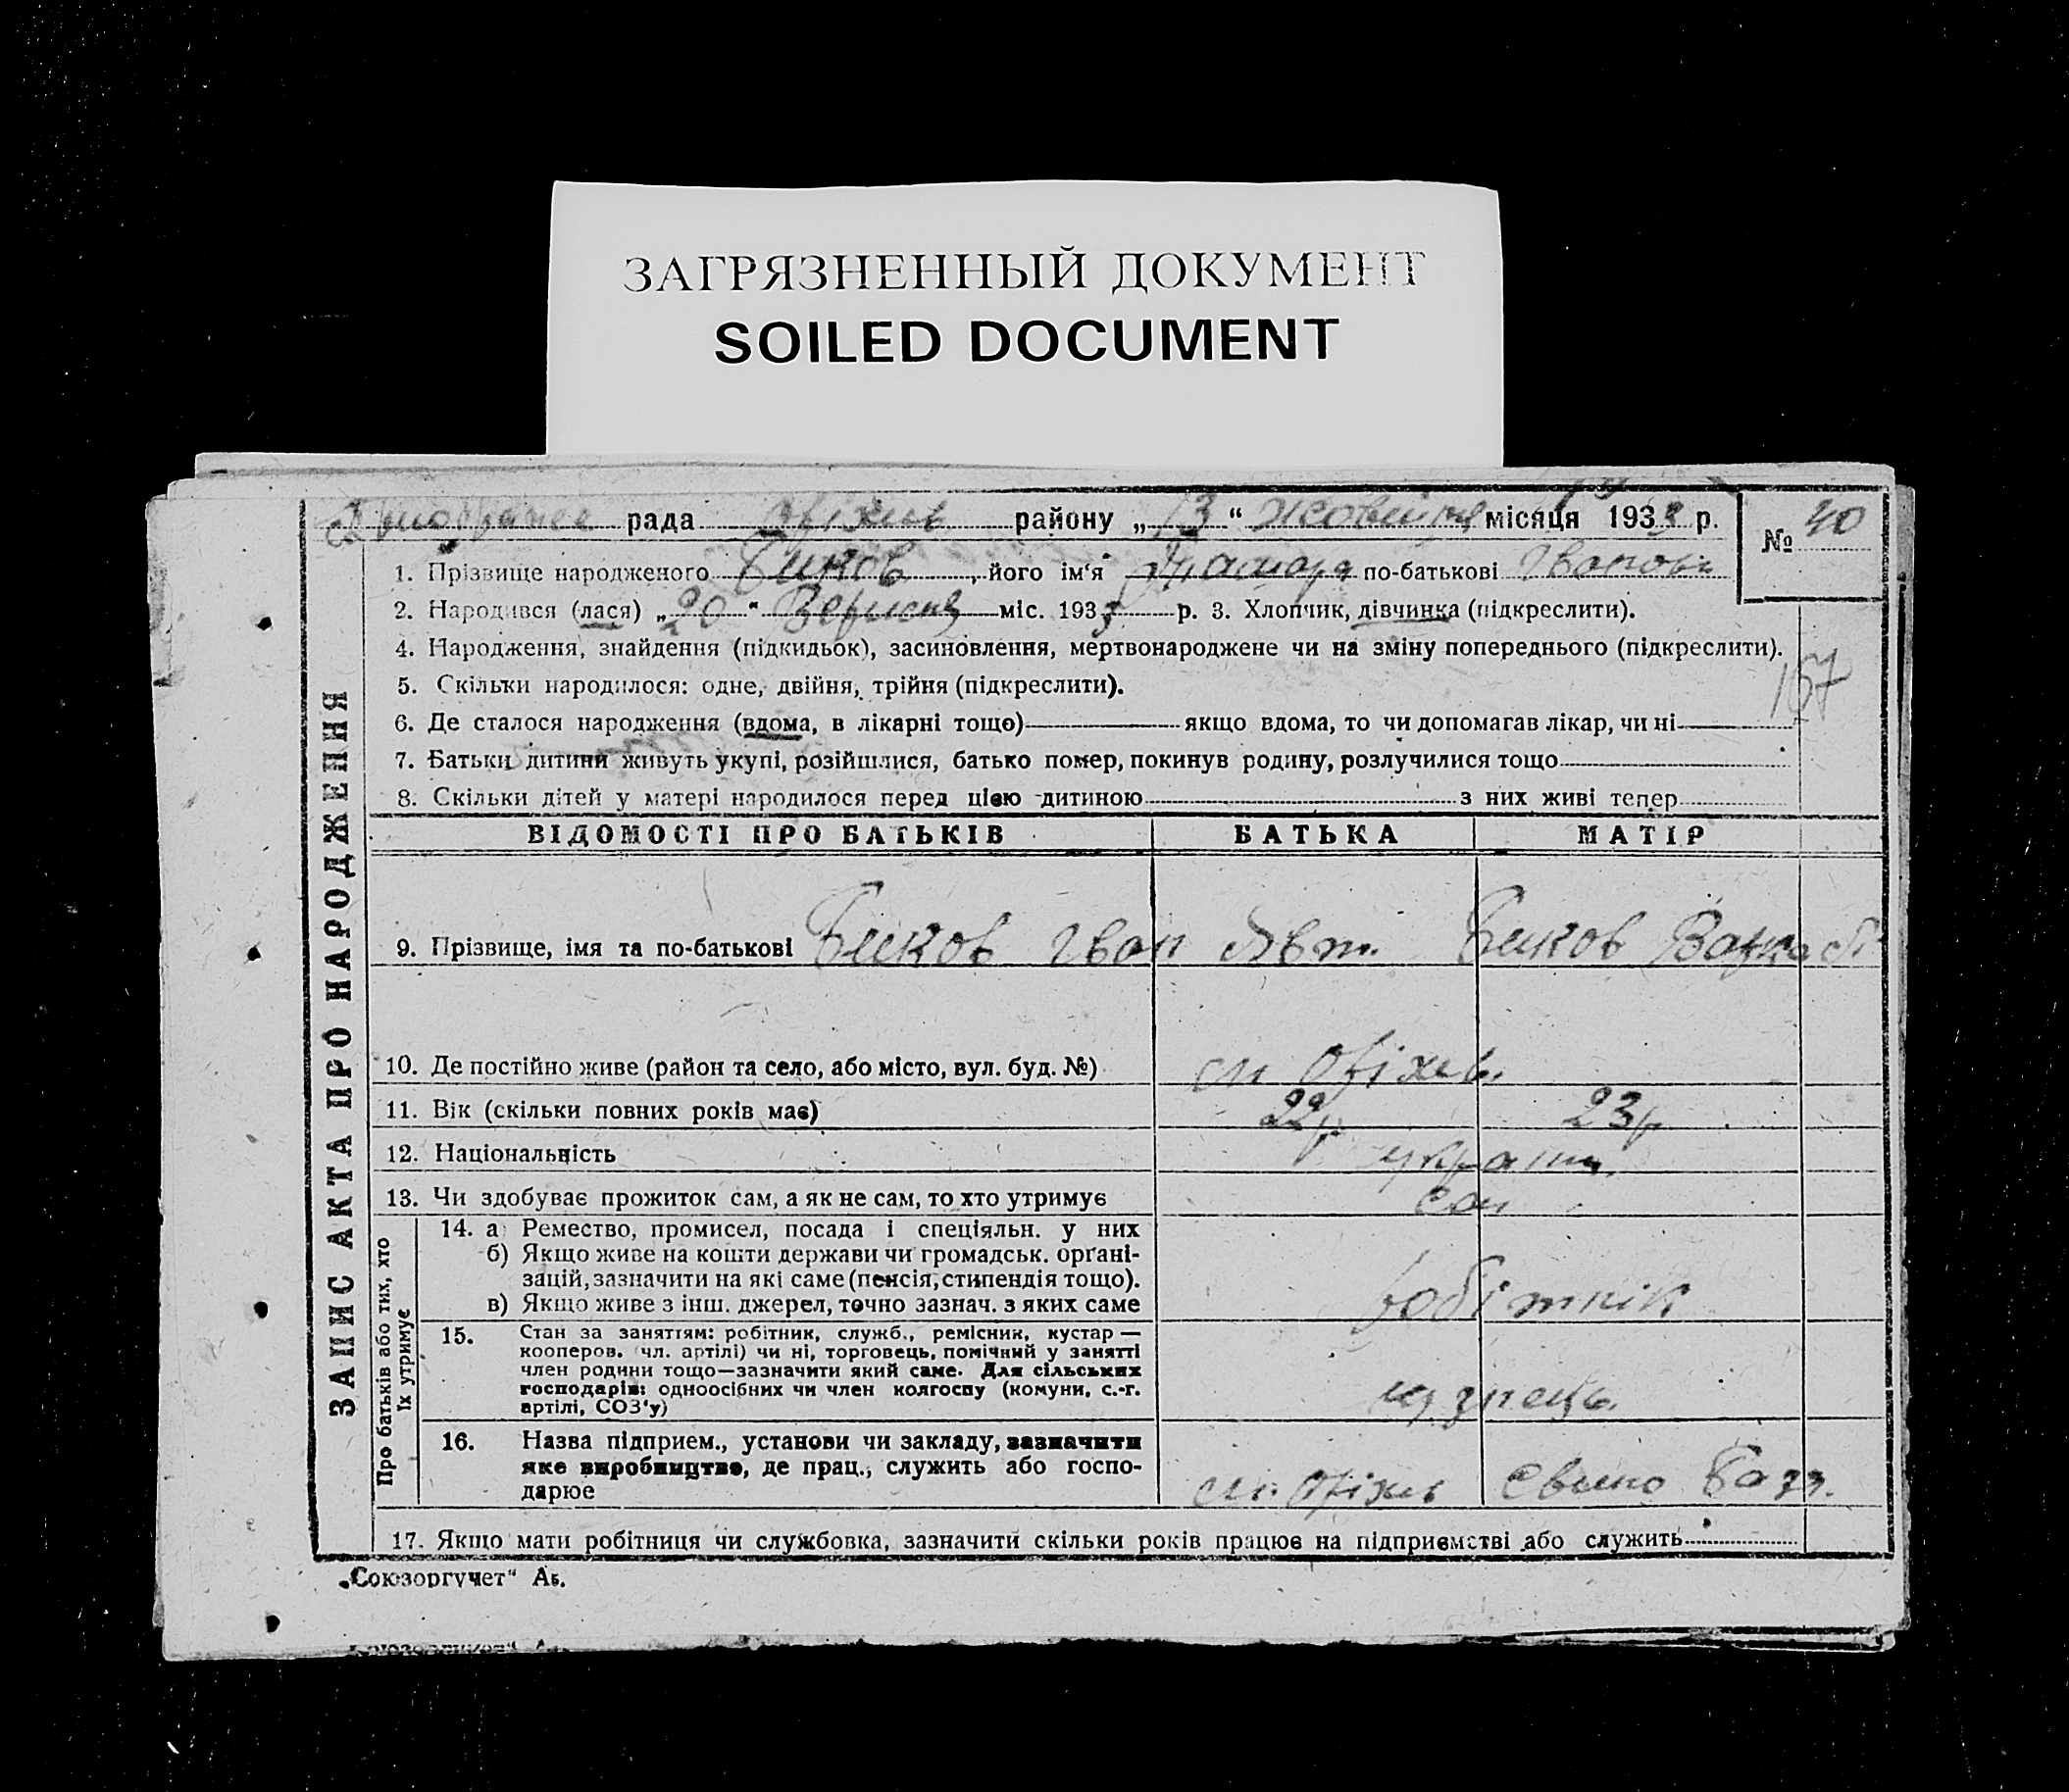 ЗАГРЯЗНЕННЫЙ ДОКУМЕНТ
SOILED DOCUMENT
рада Оріхів району „13“ Жовтня місяця 1933 р.
№ 40
1. Прізвище народженого Биков, його ім‘я Тамара по-батькові Іванов
2. Народився (лася) „20“ Вересня міс. 1933 р. 3. Хлопчик, дівчинка (підкреслити).
4. Народження, знайдення (підкидьок), засиновлення, мертвонароджене чи на зміну попереднього (підкреслити).
157
5. Скільки народилося: одне, двійня, трійня (підкреслити).
6. Де сталося народження (вдома, в лікарні тощо) якщо вдома, то чи допомагав лікар, чи ні
7. Батьки дитини живуть укупі, розійшлися, батько помер, покинув родину, розлучилися тощо
8. Скільки дітей у матері народилося перед цією дитиною з них живі тепер
ЗАПИС АКТА ПРО НАРОДЖЕННЯ
ВІДОМОСТІ ПРО БАТЬКІВ БАТЬКА МАТІР
9. Прізвище, імя та по-батькові Биков Іван Явт. Биков
10. Де постійно живе (район та село, або місто, вул. буд. №) ст Оріхів.
11. Вік (скільки повних років має) 22р 23р
12. Національність україн.
13. Чи здобуває прожиток сам, а як не сам, то хто утримує сам
Про батьків або тих, хто
їх утримує
14. а Ремество, промисел, посада і спеціяльн. у них
б) Якщо живе на кошти держави чи громадськ. орґані-
зацій, зазначити на які саме (пенсія, стипендія тощо).
в) Якщо живе з інш. джерел, точно зазнач. з яких саме робітнік
15. Стан за заняттям: робітник, служб., ремісник, кустар —
кооперов. (чл. артілі) чи ні, торговець, помічний у занятті
член родини тощо—зазначити який саме. Для сільських
господарів: одноосібних чи член колгоспу (комуни, с.-г.
артілі, СОЗ‘у) кузнець.
16. Назва підприєм., установи чи закладу, зазначити
яке виробництво, де прац., служить або госпо-
дарює ст. Оріхів Свино База.
17. Якщо мати робітниця чи службовка, зазначити скільки років працює на підприємстві або служить
„Союзоргучет“ Аб.